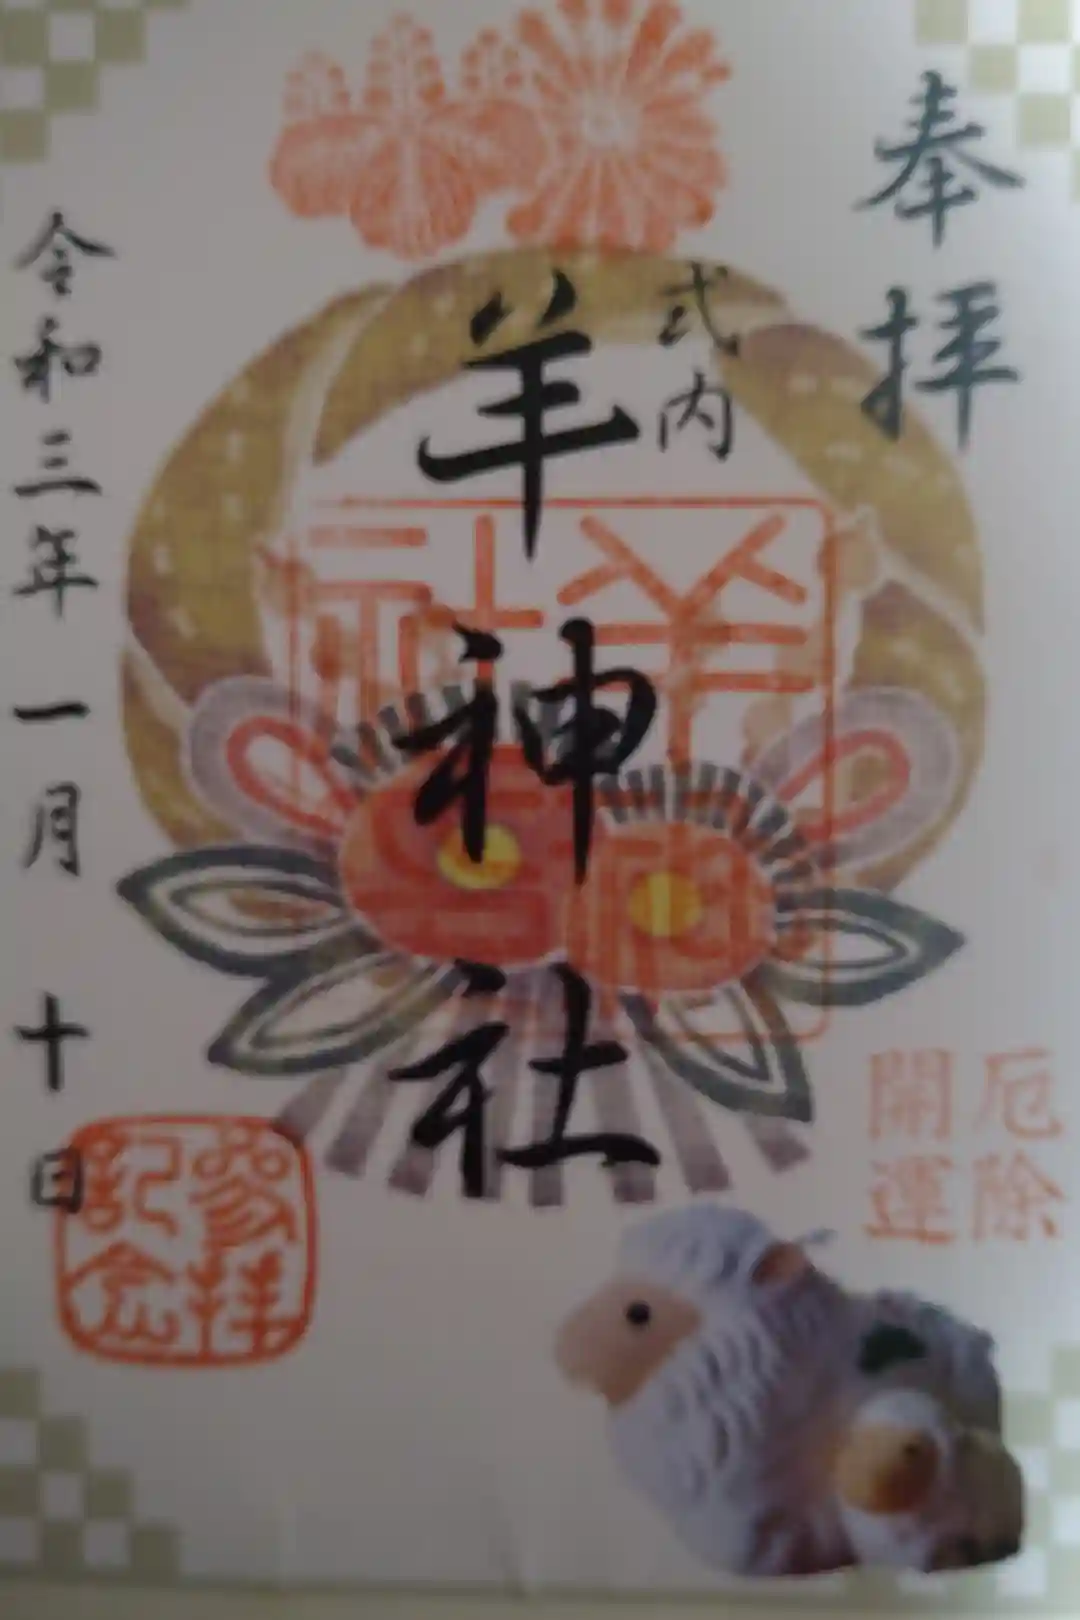 奉拝
式内
羊神社
令和三年 一月 十日
厄除
開運
参拝
記念